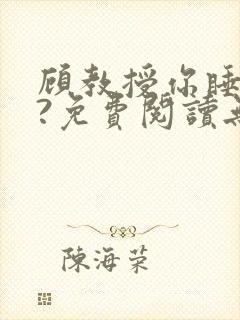 顧教授你睡
?免費閱讀
陳海荣